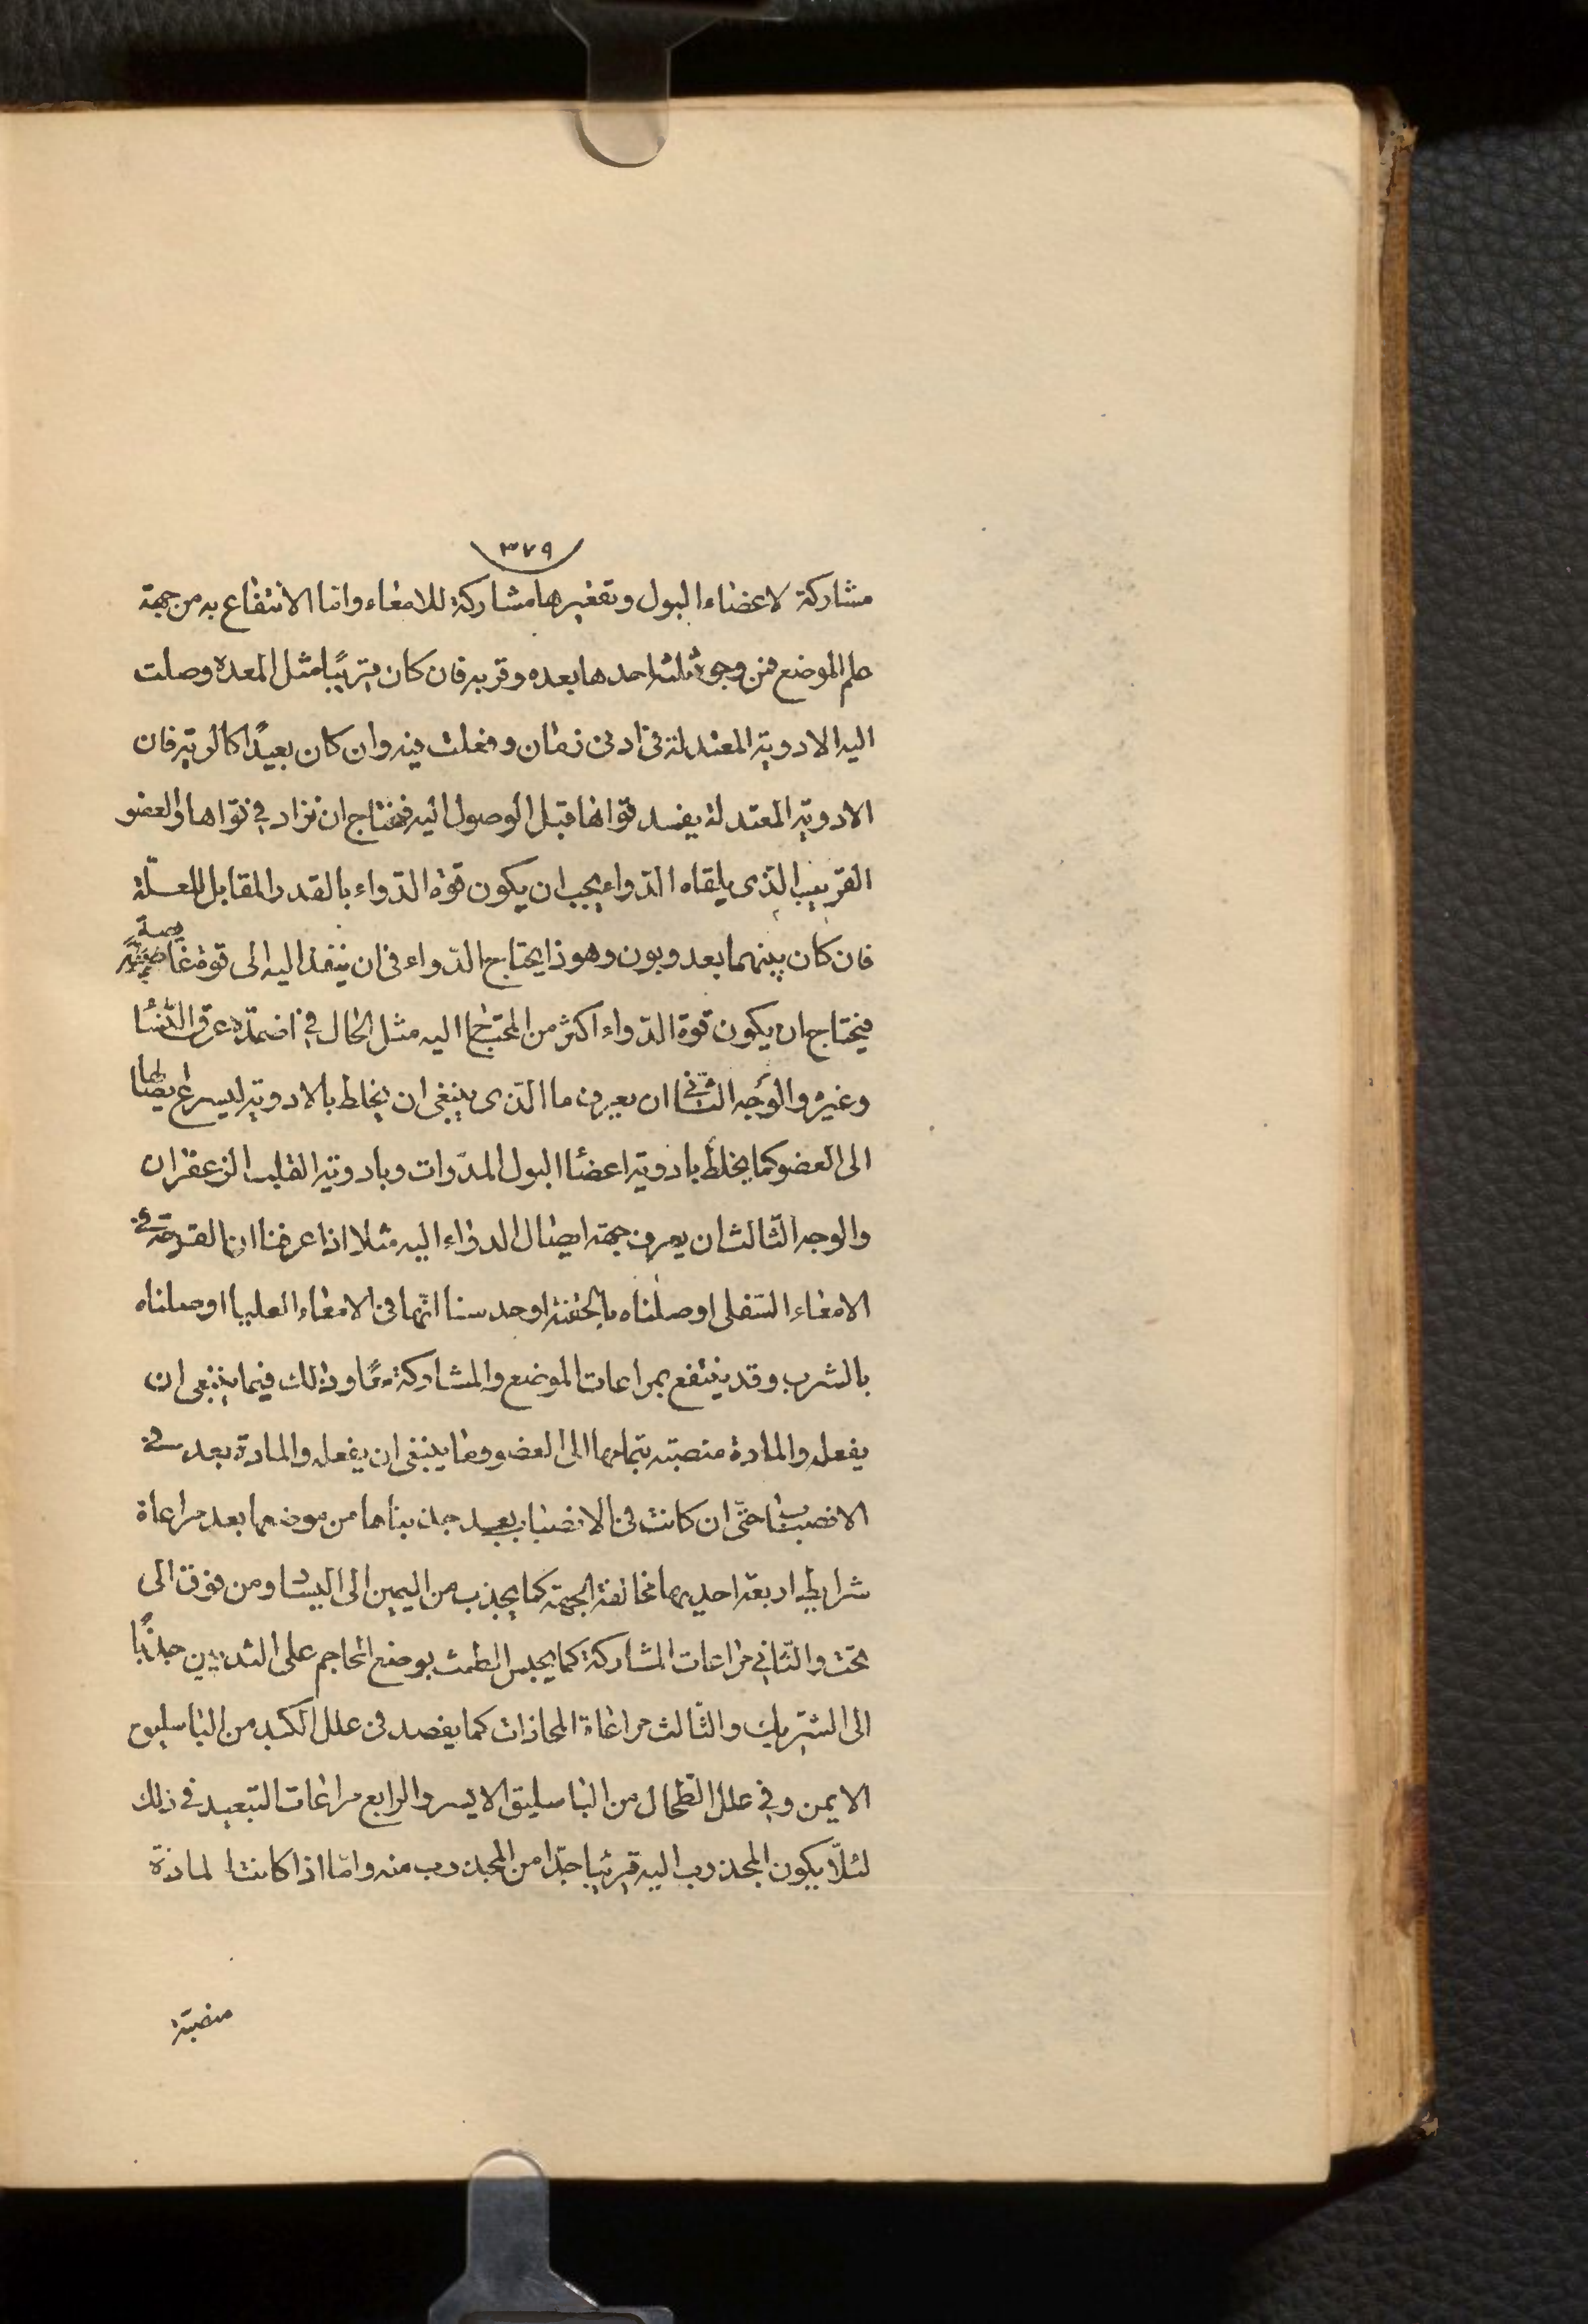 ٣٧٩
مشاركة لاعضاء البول وتقعيرها مشاركة للامعاء واما الانتفاع به من جهة
علم الموضع فمن وجوه ثلثة احدها بعده وقربه فان كان قريبًا مثل المعدة وصلت
اليه الادوية المعتدلة فى ادنى زمان وفعلت فيه وان كان بعيدًا كالرية فان
الادوية المعتدلة يفسد قواها قبل الوصول اليه فيحتاج ان تزاد في قواها والعضو
القريب الذى يلقاه الدواء يجب ان يكون قوة الدواء بالقدر المقابل للعلّة
فان كان بينهما بعد وبون وهو ذا يحتاج الدّواء فى ان ينفذ اليه الى قوة غايصة
فيحتاج ان يكون قوة الدّواء اكثر من المحتاج اليه مثل الحال في اضمدة عرق النّسا
وغيره والوجه الثّانى ان يعرف ما الّذى ينبغى ان يخلط بالادوية ليسرع بايصالها
الى العضو كما يخلط بادوية اعضا البول المدّرات وبادوية القلب الزعفران
والوجه الثّالث ان يعرف جهة ايصال الدواء اليه مثلا اذا عرفنا ان القرحة فى
الامعاء السّفلى اوصلناه بالحقنة او حدسنا انّها فى الامعاء العليا اوصلناه
بالشرب وقد ينتفع بمراعات الموضع والمشاركة معًا وذلك فيما ينبغى ان
يفعل والمادة منصبّة بتمامها الى العضو وما ينبغى ان يفعل والمادة بعد فى
الانصباب حتّى ان كانت فى الانصباب بعيد جذبناها من موضعها بعد مراعاة
شرايط اربعة احديها مخالفة الجهة كما يجذب من اليمين الى اليسار ومن فوق الى
تحت والثّاني مراعات المشاركة كما يحبس الطمث بوضع المحاجم على الثديين جذبًا
الى الشّريك والثّالث مراعاة المحاذات كما يفصد فى علل الكبد من الباسليق
الايمن وفي علل الطّحال من الباسليق الايسر والرابع مراعات التبعيد فى ذلك
لئلّا يكون المجذوب اليه قريبًا جدّا من المجذوب منه وامّا اذا كانت المادّة
منصبّة